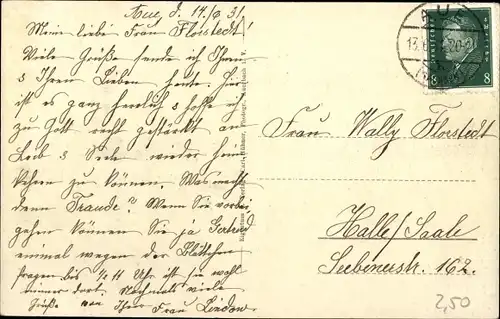 Aue, d. 14./8. 31.
Meine liebe Frau Florstedt!
Viele Grüße sende ich Ihnen
& Ihren Lieben heute. Hier
ist es ganz herrlich & hoffe ich
zu Gott recht gestärkt an
Leib & Seele wieder heim
kehren zu können. Was macht
denn Traude? Wenn Sie vorbei
gehen können Sie ja Gertrud
einmal wegen der Blättchen
fragen bis 1/2 11 Uhr ist sie wohl
immer dort. Nochmals viele
Grüße von Ihrer Frau Lindow.
AUE
8 8
Frau Wally Florstedt
Halle/Saale
Seebenerstr. 162.
2,50